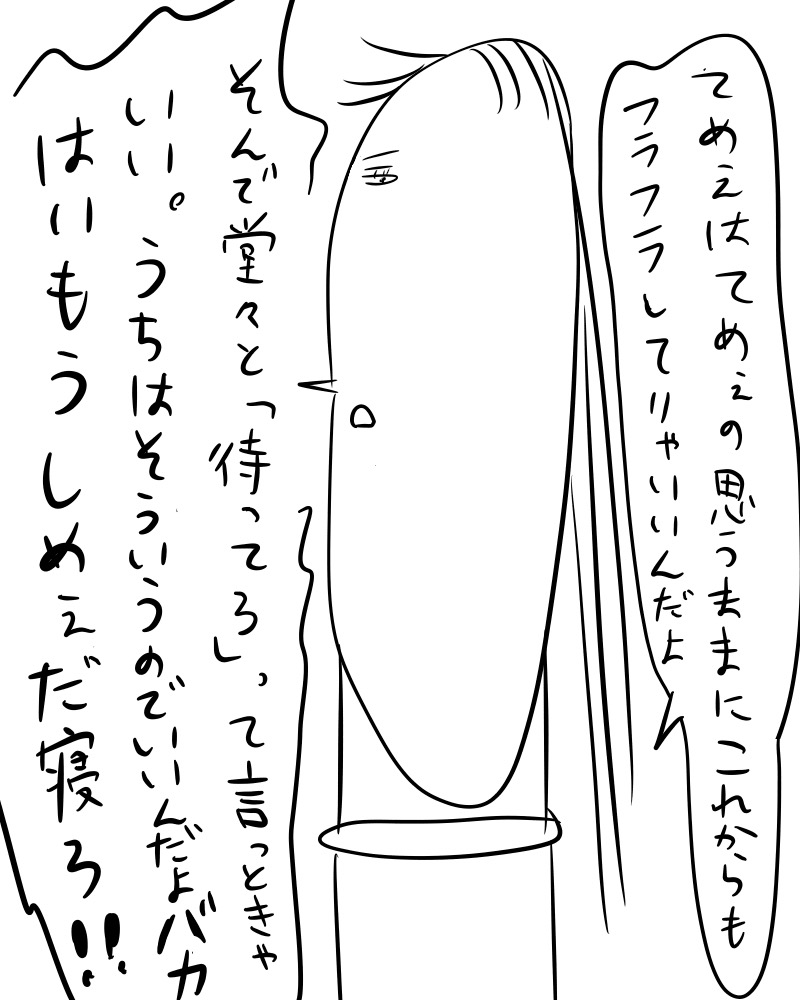 てめえはてめぇの思うままにこれからも
フラフラしてりゃいいんだよ
そんで堂々と「待ってろ」って言っときゃ
いい。うちはそういうのでいいんだよバカ
はいもうしめぇだ寝ろ!!